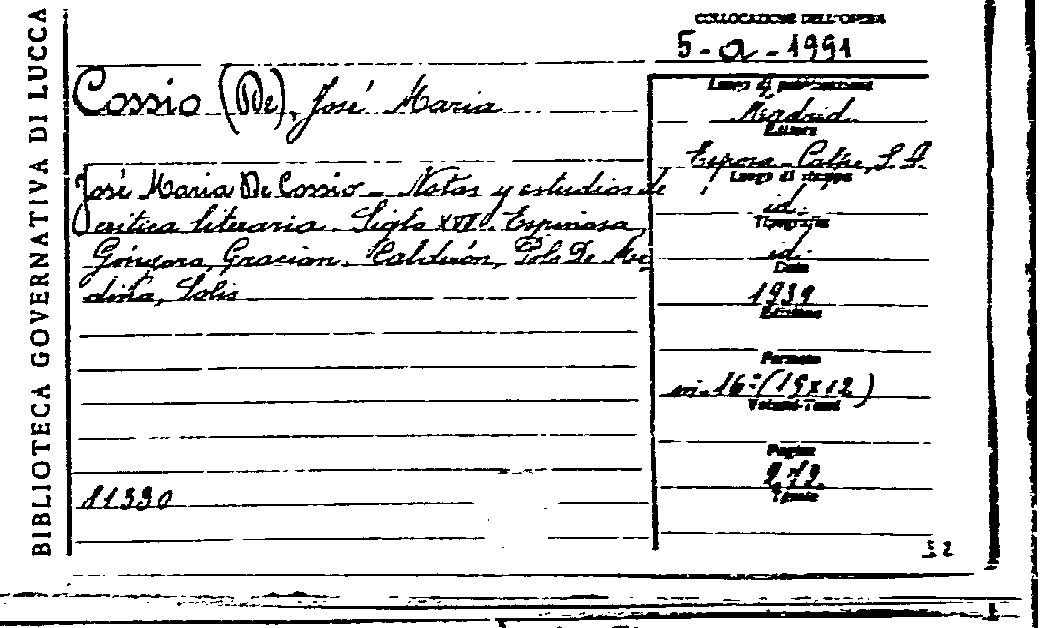 BIBLIOTECA GOVERNATIVA DI LUCCA
COLLOCAZIONE DELL'OPERA
5-a-1991
Cossio (De), José Maria
José Maria De Cossio - Notas y estudios de
critica literaria - Siglo XVII. Espinosa,
Góngora, Gracian, Calderón, Polo De Me-
dina, Solis
11330
Luogo di pubblicazione
Madrid
Editore
Espasa-Calpe, S. A.
Luogo di stampa
id.
Tipografia
id.
Data
1939
Edizione
Formato
in-16° (19x12)
Volumi-Tomi
Pagine
Tavole